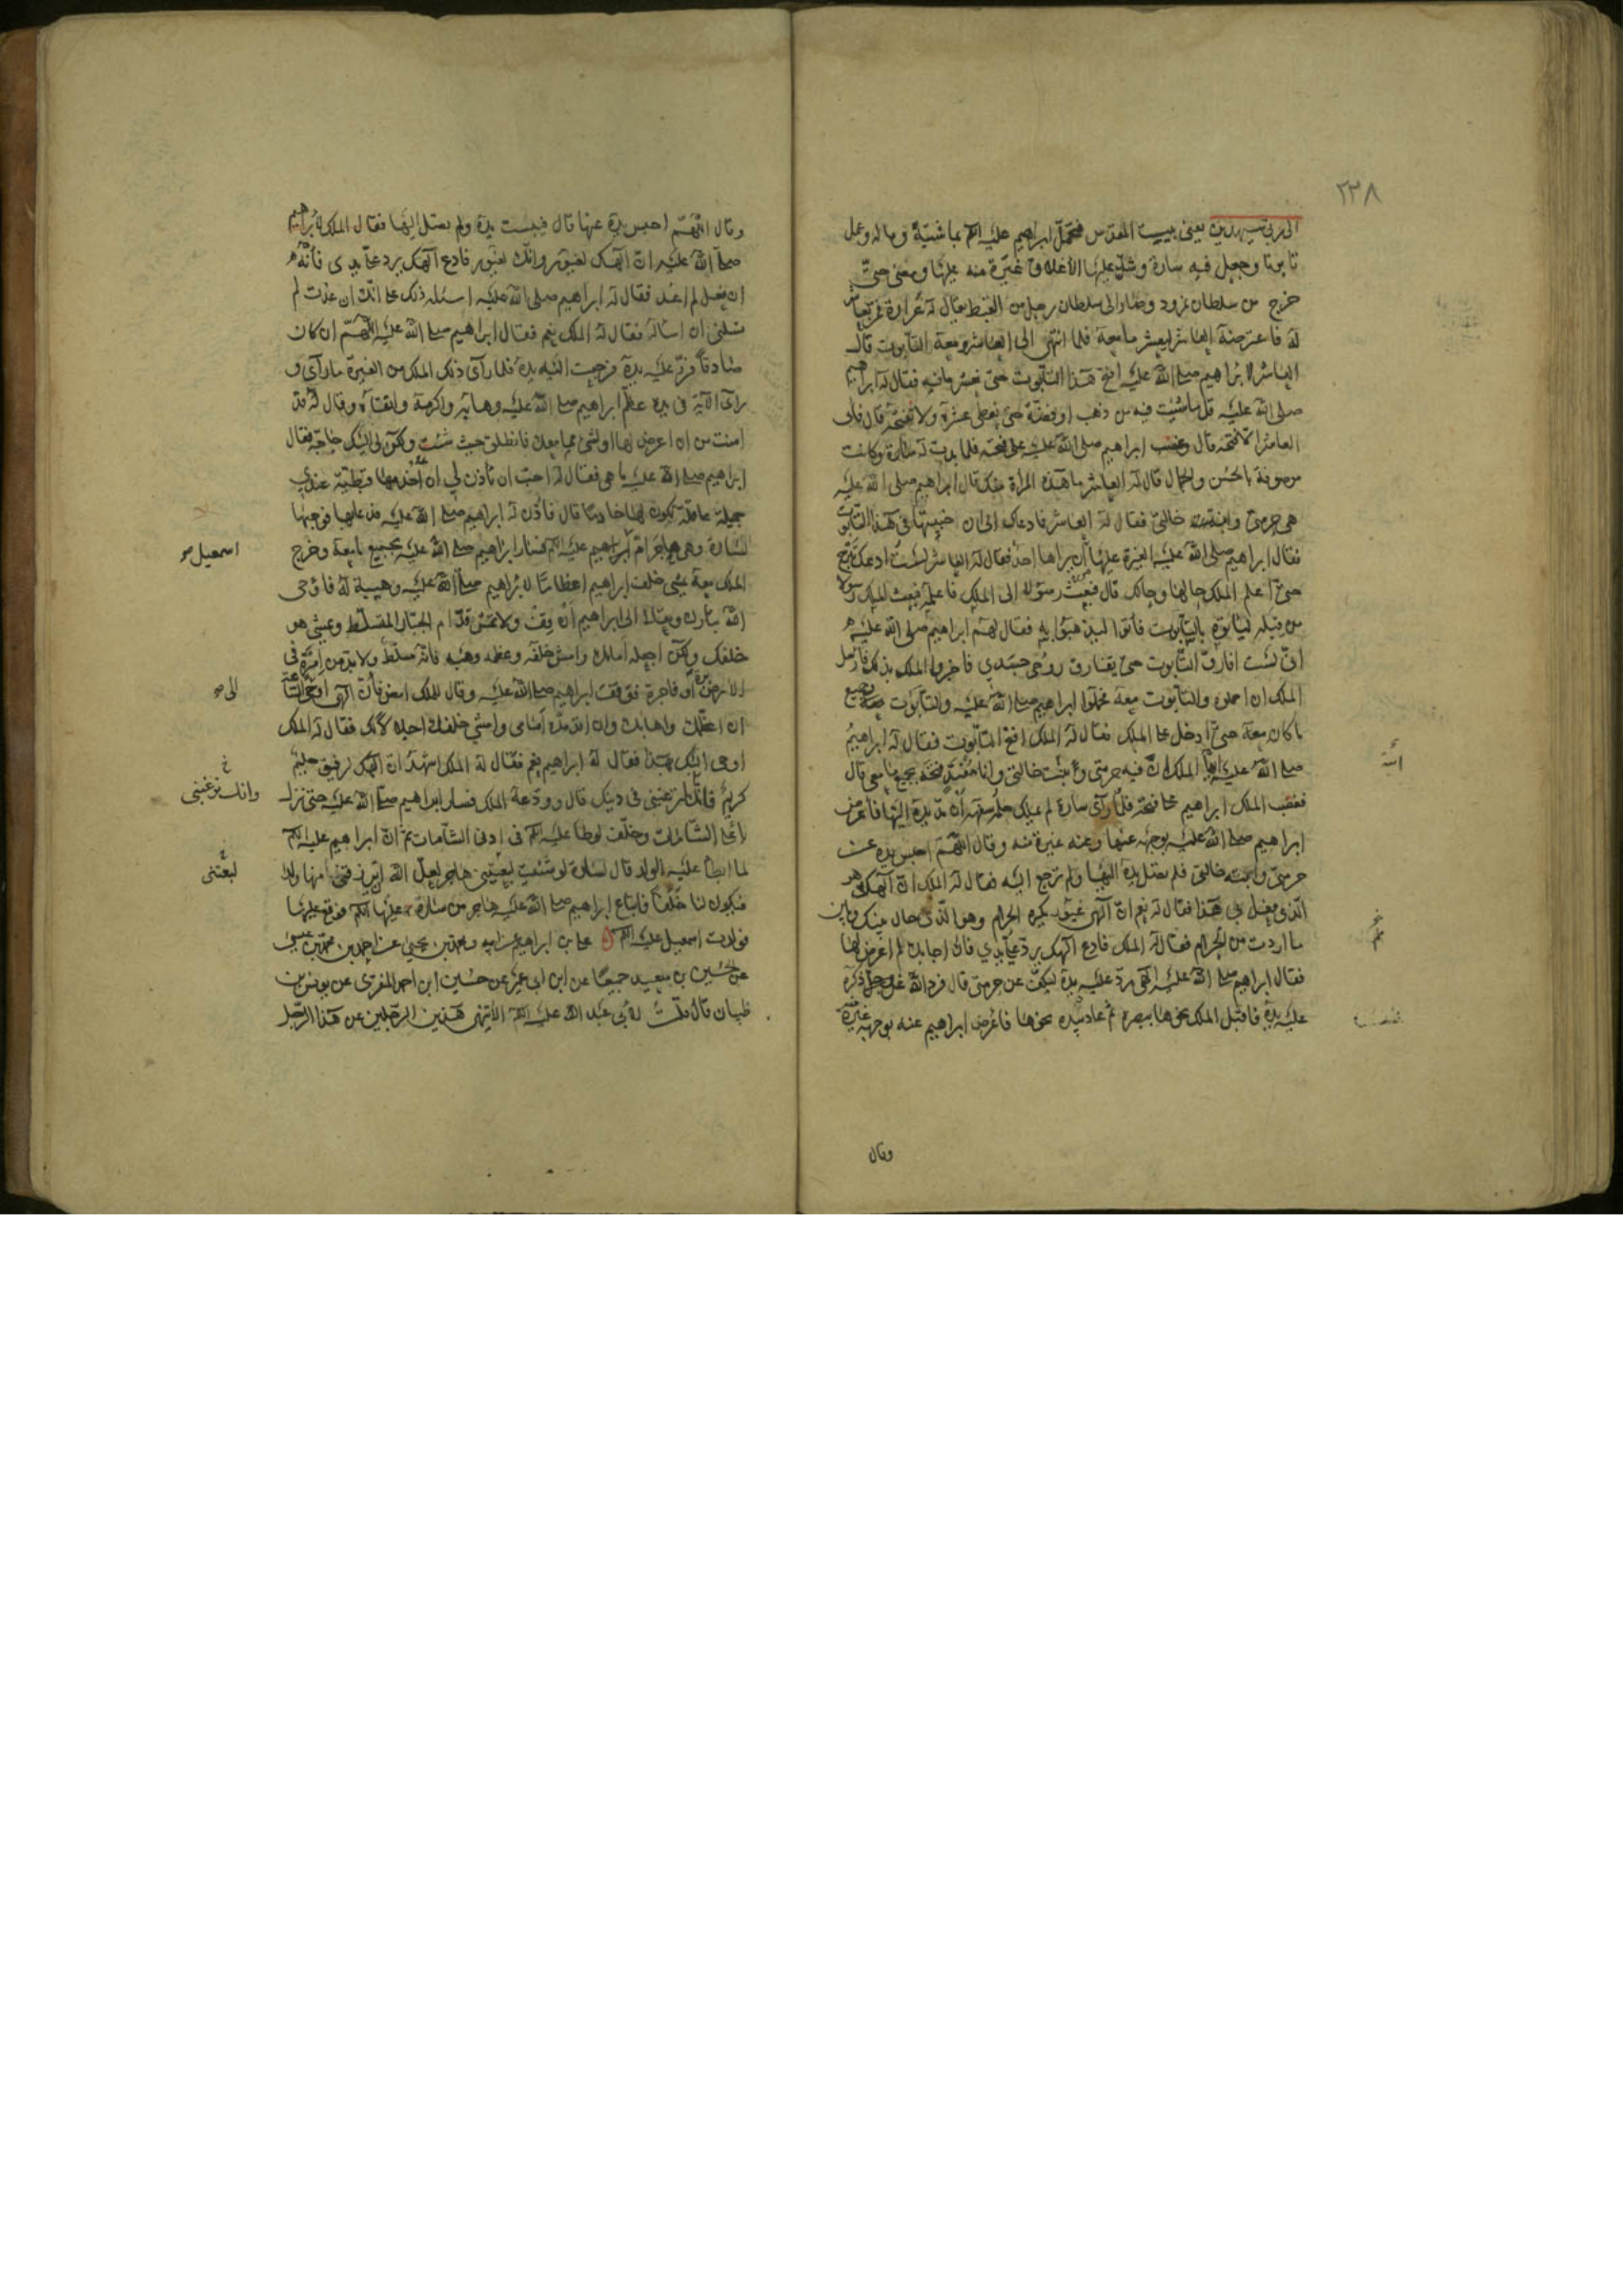 ٢٣٨
الى ربي سيهدين يعني بيت المقدس فتحمل ابراهيم عليه السلم بماشيته وماله وعمل
تابوتا وجعل فيه سارة وشد عليها الأغلاق غيرة منه عليها ومضى حتى
خرج من سلطان نمرود وصار الى سلطان رجل من القبط يقال له عرارة فمر بعاشر
له فاعترضه العاشر ليعشر ما معه فلما انتهى الى العاشر ومعه التابوت قال
العاشر لابراهيم صلى الله عليه افتح هذا التابوت حتى نعشر ما فيه فقال له ابراهيم
صلى الله عليه قل ما شئت فيه من ذهب او فضة حتى نعطى عشره ولا نفتحه قال فابى
العاشر الا فتحه قال وغضب ابراهيم صلى الله عليه على فتحه فلما بدت له سارة وكانت
موصوفة بالحسن والجمال قال له العاشر ما هذه المراة منك قال ابراهيم صلى الله عليه
هي حرمتي وابنة خالتي فقال له العاشر فما دعاك الى ان خبيتها في هذا التابوت
فقال ابراهيم صلى الله عليه الغيرة عليها ان يراها احد فقال له العاشر لست ادعك تبرح
حتى اعلم الملك حالها وحالك قال فبعث رسولا الى الملك فاعلمه فبعث الملك رسولا
من قبله ليأتوه بالتابوت فأتوا ليذهبوا به فقال لهم ابراهيم صلى الله عليه
اني لست افارق التابوت حتى يفارق روحي جسدي فاخبروا الملك بذلك فارسل
الملك ان احملوه والتابوت معه فحملوا ابراهيم صلى الله عليه والتابوت وجميع
ما كان معه حتى ادخل على الملك فقال له الملك افتح التابوت فقال له ابراهيم
صلى الله عليه ايها الملك ان فيه حرمتي وبنت خالتي وانا مفتد فتحه بجميع ما معي قال
فغضب الملك ابراهيم على فتحه فلما رأى سارة لم يملك حلمه سفهه ان مد يده اليها فاعرض
ابراهيم صلى الله عليه بوجهه عنها وعنه غيرة منه وقال اللهم احبس يده عن
حرمتي وابنة خالتي فلم تصل يده اليها ولم ترجع اليه فقال له الملك ان الهك هو
الذي فعل بي هذا فقال له نعم ان الهي غيور يكره الحرام وهو الذي حال بينك وبين
ما اردت من الحرام فقال له الملك فادع الهك يرد علي يدي فان اجابك لم اعرض لها
فقال ابراهيم صلى الله عليه الهي رد عليه يده ليكف عن حرمتي قال فرد الله عز وجل ذكره
عليه يده فاقبل الملك نحوها ببصره ثم عاد بيده نحوها فاعرض ابراهيم عنه بوجهه غيرة
ابنة
وقال
وقال اللهم احبس يده عنها قال فيبست يده ولم تصل اليها فقال الملك لابراهيم
صلى الله عليه ان الهك لغيور وانك لغيور فادع الهك يرد علي يدي فانه
ان فعل لم اعد فقال له ابراهيم صلى الله عليه اسئله ذلك على انك ان عدت لم
تسلني ان اساله فقال له الملك نعم فقال ابراهيم صلى الله عليه اللهم ان كان
صادقا فرد عليه يده فرجعت اليه يده فلما رآى ذلك الملك من الغيرة ما رآى و
رآى الآية في يده عظم ابراهيم صلى الله عليه وهابه واكرمه واتقاه وقال له قد
امنت من ان اعرض لها او لشئ مما معك فانطلق حيث شئت ولكن لي اليك حاجة فقال
ابراهيم صلى الله عليه ما هي فقال له احب ان تأذن لي ان اخدمها قبطية عندي
جميلة عاقلة تكون لها خادما قال فأذن له ابراهيم صلى الله عليه فدعا بها فوهبها
لسارة وهي هاجر ام ابراهيم عليه السلم فسار ابراهيم صلى الله عليه بجميع ما معه وخرج
الملك معه يمشي خلف ابراهيم اعظاما لابراهيم صلى الله عليه وهيبة له فاوحى
الله تبارك وتعالى الى ابراهيم ان قف ولا تمش قدام الجبار المتسلط ويمشي هو
خلفك ولكن اجعله امامك وامش خلفه وعظمه وهبه فانه مسلط ولا بد من امرة في
الارض برة او فاجرة فوقف ابراهيم صلى الله عليه وقال للملك امض فان الهي اوحى الساعة
ان اعظمك واهابك وان اقدمك امامي وامشي خلفك اجلالا لك فقال له الملك
اوحى اليك بهذا فقال له ابراهيم نعم فقال له الملك اشهد ان الهك لرفيق حليم
كريم فانك ترغبني في دينك قال وودعه الملك فسار ابراهيم صلى الله عليه حتى نزل
باعلا الشامات وخلف لوطا عليه السلم في ادنى الشامات ثم ان ابراهيم عليه السلم
لما ابطا عليه الولد قال لسارة لو شئت لبعتني هاجر لعل الله ان يرزقني منها ولدا
فيكون لنا خلفا فابتاع ابراهيم صلى الله عليه هاجر من سارة عليها السلم فوقع عليها
فولدت اسمعيل عليه السلم علي بن ابراهيم عن ابيه ومحمد بن يحيى عن احمد بن محمد بن عيسى
عن الحسين بن سعيد جميعا عن ابن ابي عمير عن حسين ابن احمد المنقري عن يونس بن
ظبيان قال قلت لابي عبد الله عليه السلم الا تنهى هذين الرجلين عن هذا الرجل
اسمعيل صح
الى صح
وانك ترغبني
لبعتني